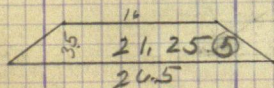 16
3.5 21.25 ⑤
26.5